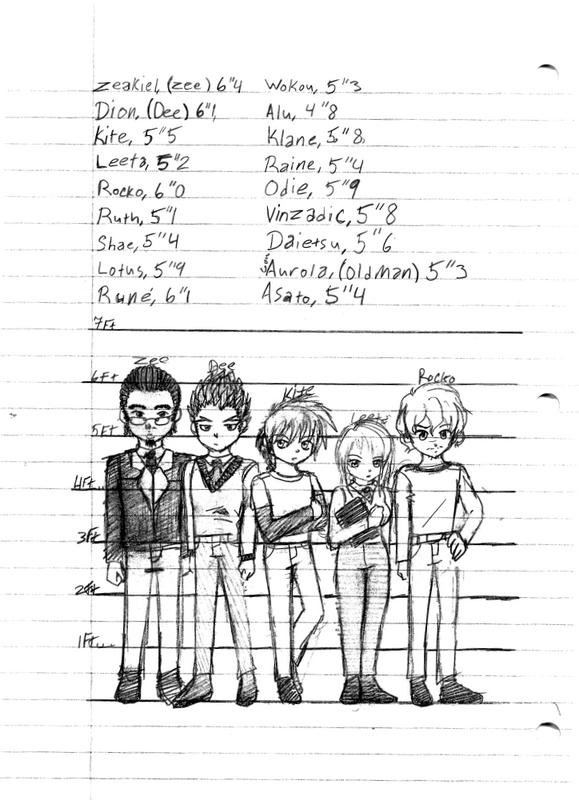 Zeakiel, (Zee) 6"4
Dion, (Dee) 6"1
Kite, 5"5
Leeta, 5"2
Rocko, 6"0
Ruth, 5"1
Shae, 5"4
Lotus, 5"9
Runé, 6"1
Wokou, 5"3
Alu, 4"8
Klane, 5"8
Raine, 5"4
Odie, 5"9
Vinzadic, 5"8
Daietsu, 5"6
Aurola, (Old man) 5"3
Asato, 5"4
7Ft
Zee
Dee
Rocko
6Ft
Kite
Leeta
5Ft
4Ft
3Ft
2Ft
1Ft